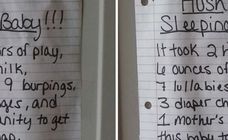 Baby!!!
rs of play,
milk,
9 burpings,
ges, and
anity to get
nap.
Hush
Sleeping
It took 2 h
6 ounces of
7 lullabies
3 diaper ch
1 mother's
this baby t